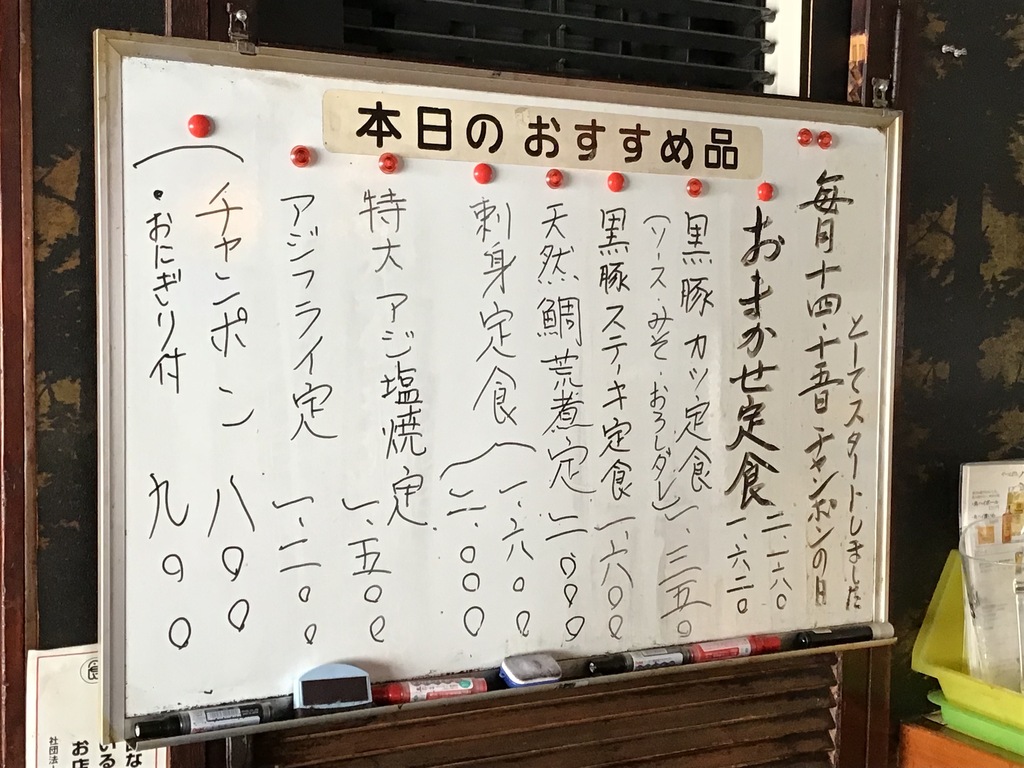 本日のおすすめ品
毎月十四・十五日チャンポンの日
としてスタートしました
おまかせ定食
二、一八〇
一、六二〇
黒豚カツ定食
(ソース・みそ・おろしダレ)一、三五〇
黒豚ステーキ定食 一、六〇〇
天然鯛荒煮定 二、〇〇〇
刺身定食
一、六八〇
二、〇〇〇
特大アジ塩焼定 一、五〇〇
アジフライ定 一、二〇〇
チャンポン 八〇〇
・おにぎり付 九〇〇
いる
お店
社団法